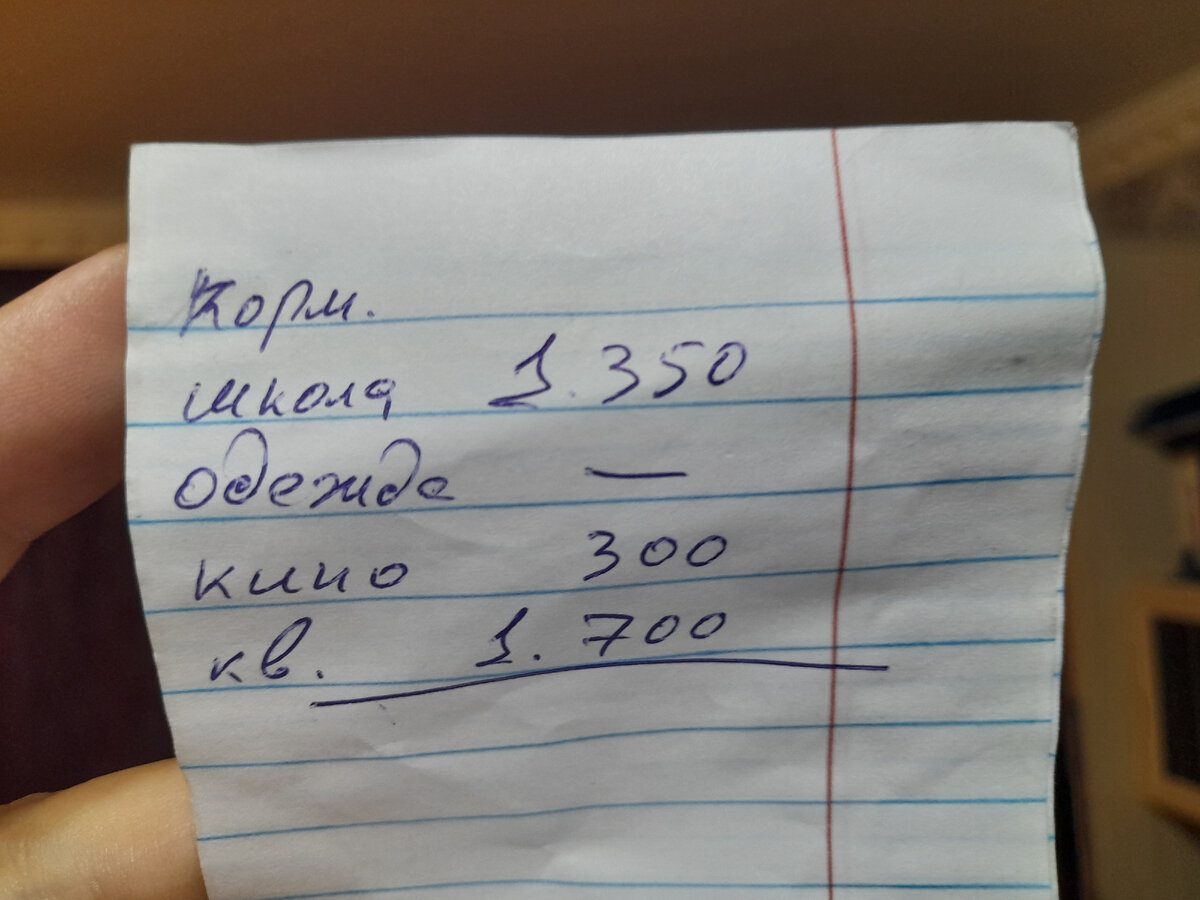 Корм.
школа 1.350
одежда —
кино 300
кв. 1.700